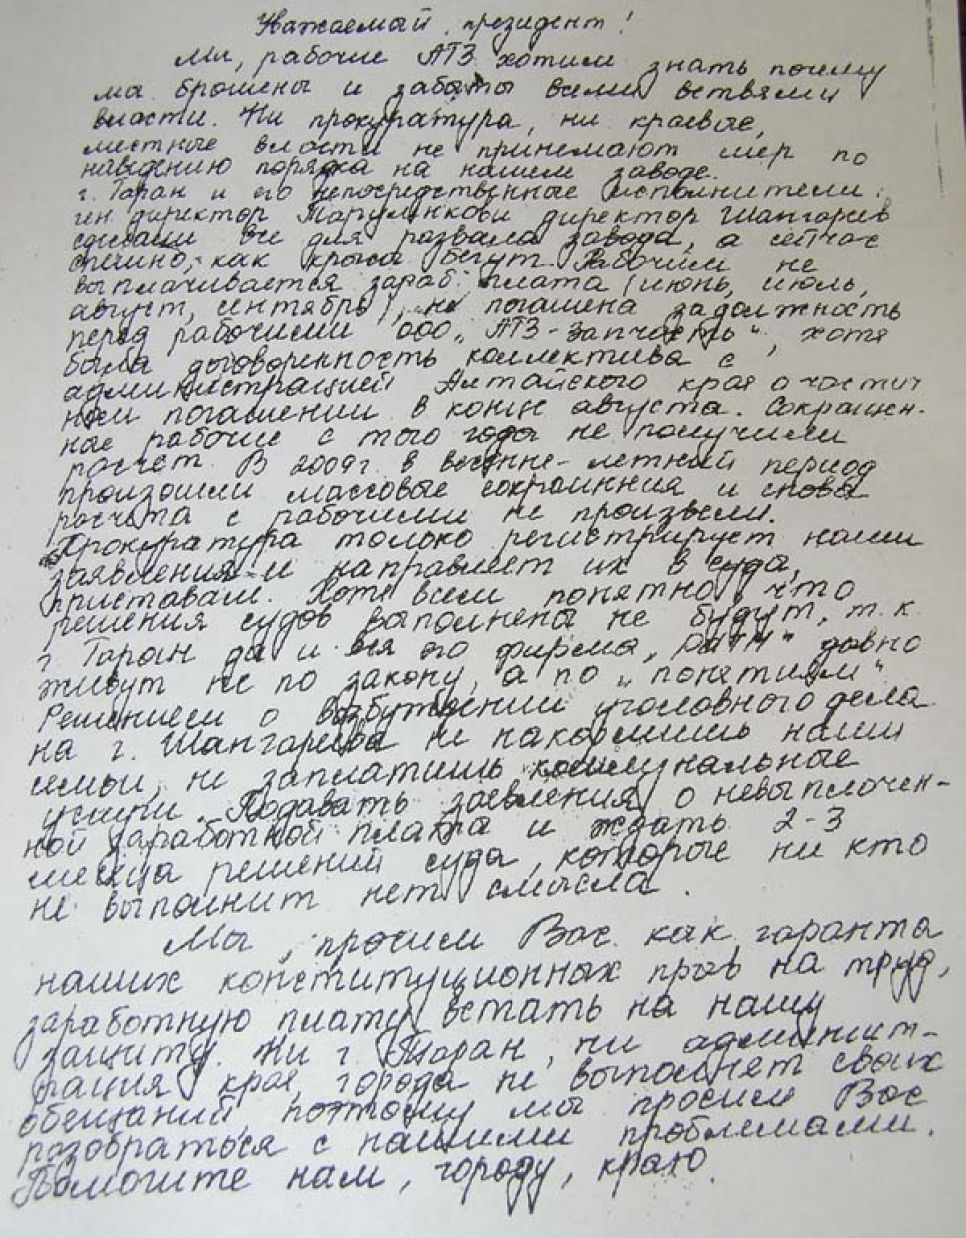 Уважаемый, президент!
Мы, рабочие АТЗ хотим знать почему
мы брошены и забыты всеми ветвями
власти. Ни прокуратура, ни краевые,
местные власти не принемают мер по
наведению порядка на нашем заводе.
г. Таран и его непосредственные исполнители:
ген директор директор Шангареев
сделали все для развала завода, а сейчас
спешно, как крысы бегут. Рабочим не
выплачивается зараб. плата (июнь, июль,
август, сентябрь), не погашена задолжность
перед рабочими ООО „АТЗ-запчасть", хотя
была договоренность коллектива с
администрацией Алтайского края о частич
ном погашении в конце августа. Сокращен-
ные рабочие с того года не получили
расчет. В 2009г. в весенне-летний период
произошли массовые сокращения и снова
расчета с рабочими не произвели.
Прокуратура только регистрирует наши
заявления и направляет их в суда,
приставам. Хотя всем понятно, что
решения судов выполнены не будут, т.к.
г. Таран да и вся его фирма давно
живут не по закону, а по „понятиям"
Решением о возбуждении уголовного дела
на г. Шангареева не накормишь наши
семьи, не заплатишь коммунальные
услуги. Подавать заявления о невыплочен-
ной заработной плата и ждать 2-3
месяца решений суда, которые ни кто
не выполнит нет смысла.
Мы, просим Вас как гаранта
наших конституционных прав на труд,
заработную плату встать на нашу
защиту. Ни г. Таран, ни админист-
рация края, города не выполняет своих
обещаний, поэтому мы просим Вас
разобраться с нашими проблемами.
Помогите нам, городу, краю.